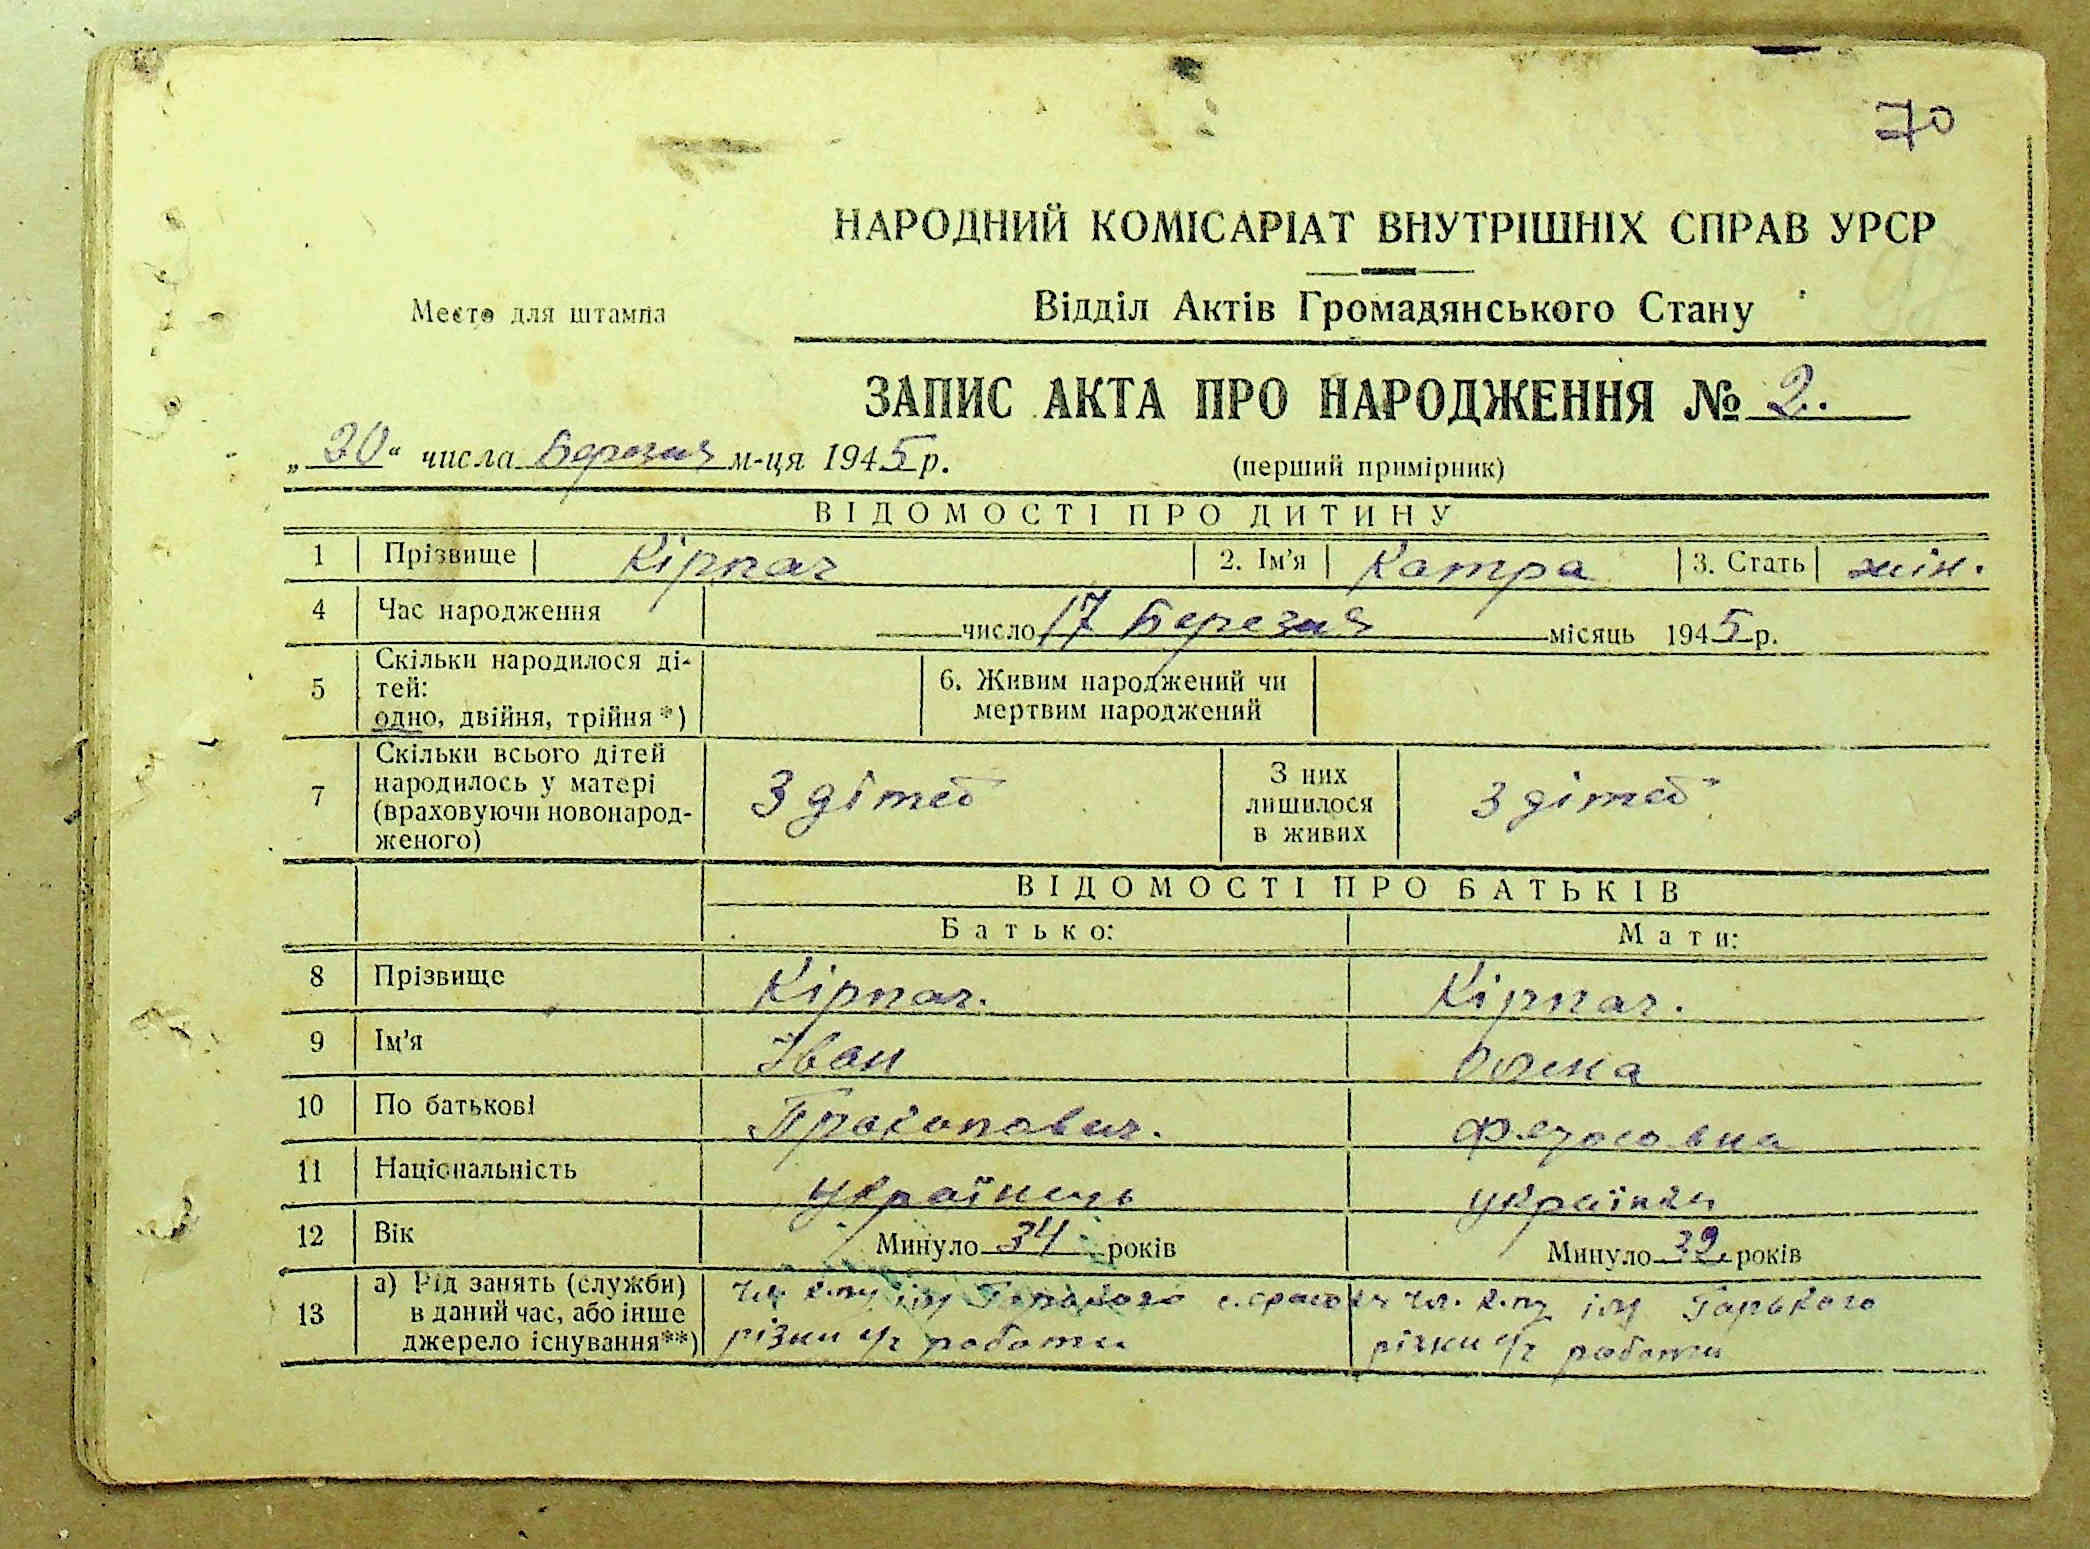 70
НАРОДНИЙ КОМІСАРІАТ ВНУТРІШНІХ СПРАВ УРСР
Место для штампа
Відділ Актів Громадянського Стану
ЗАПИС АКТА ПРО НАРОДЖЕННЯ № 2.
„30“ числа Березня м-ця 1945 р.
(перший примірник)
ВІДОМОСТІ ПРО ДИТИНУ
1 Прізвище Кірпач 2. Ім'я Катра 3. Стать жін.
4 Час народження число 17 Березня місяць 1945 р.
5 Скільки народилося ді-
тей:
одно, двійня, трійня*)
6. Живим народжений чи
мертвим народжений
7 Скільки всього дітей
народилось у матері
(враховуючи новонарод-
женого)
3 дітей
З них
лишилося
в живих
3 дітей
ВІДОМОСТІ ПРО БАТЬКІВ
Батько: Мати:
8 Прізвище Кірпач. Кірпач.
9 Ім'я Іван
10 По батькові Прокопович.
11 Національність українець українка
12 Вік Минуло 34 років Минуло 32 років
13 а) Рід занять (служби)
в даний час, або інше
джерело існування**)
чл. к-пу ім Горького
різни роботи
чл. к-пу ім Горького
різни роботи